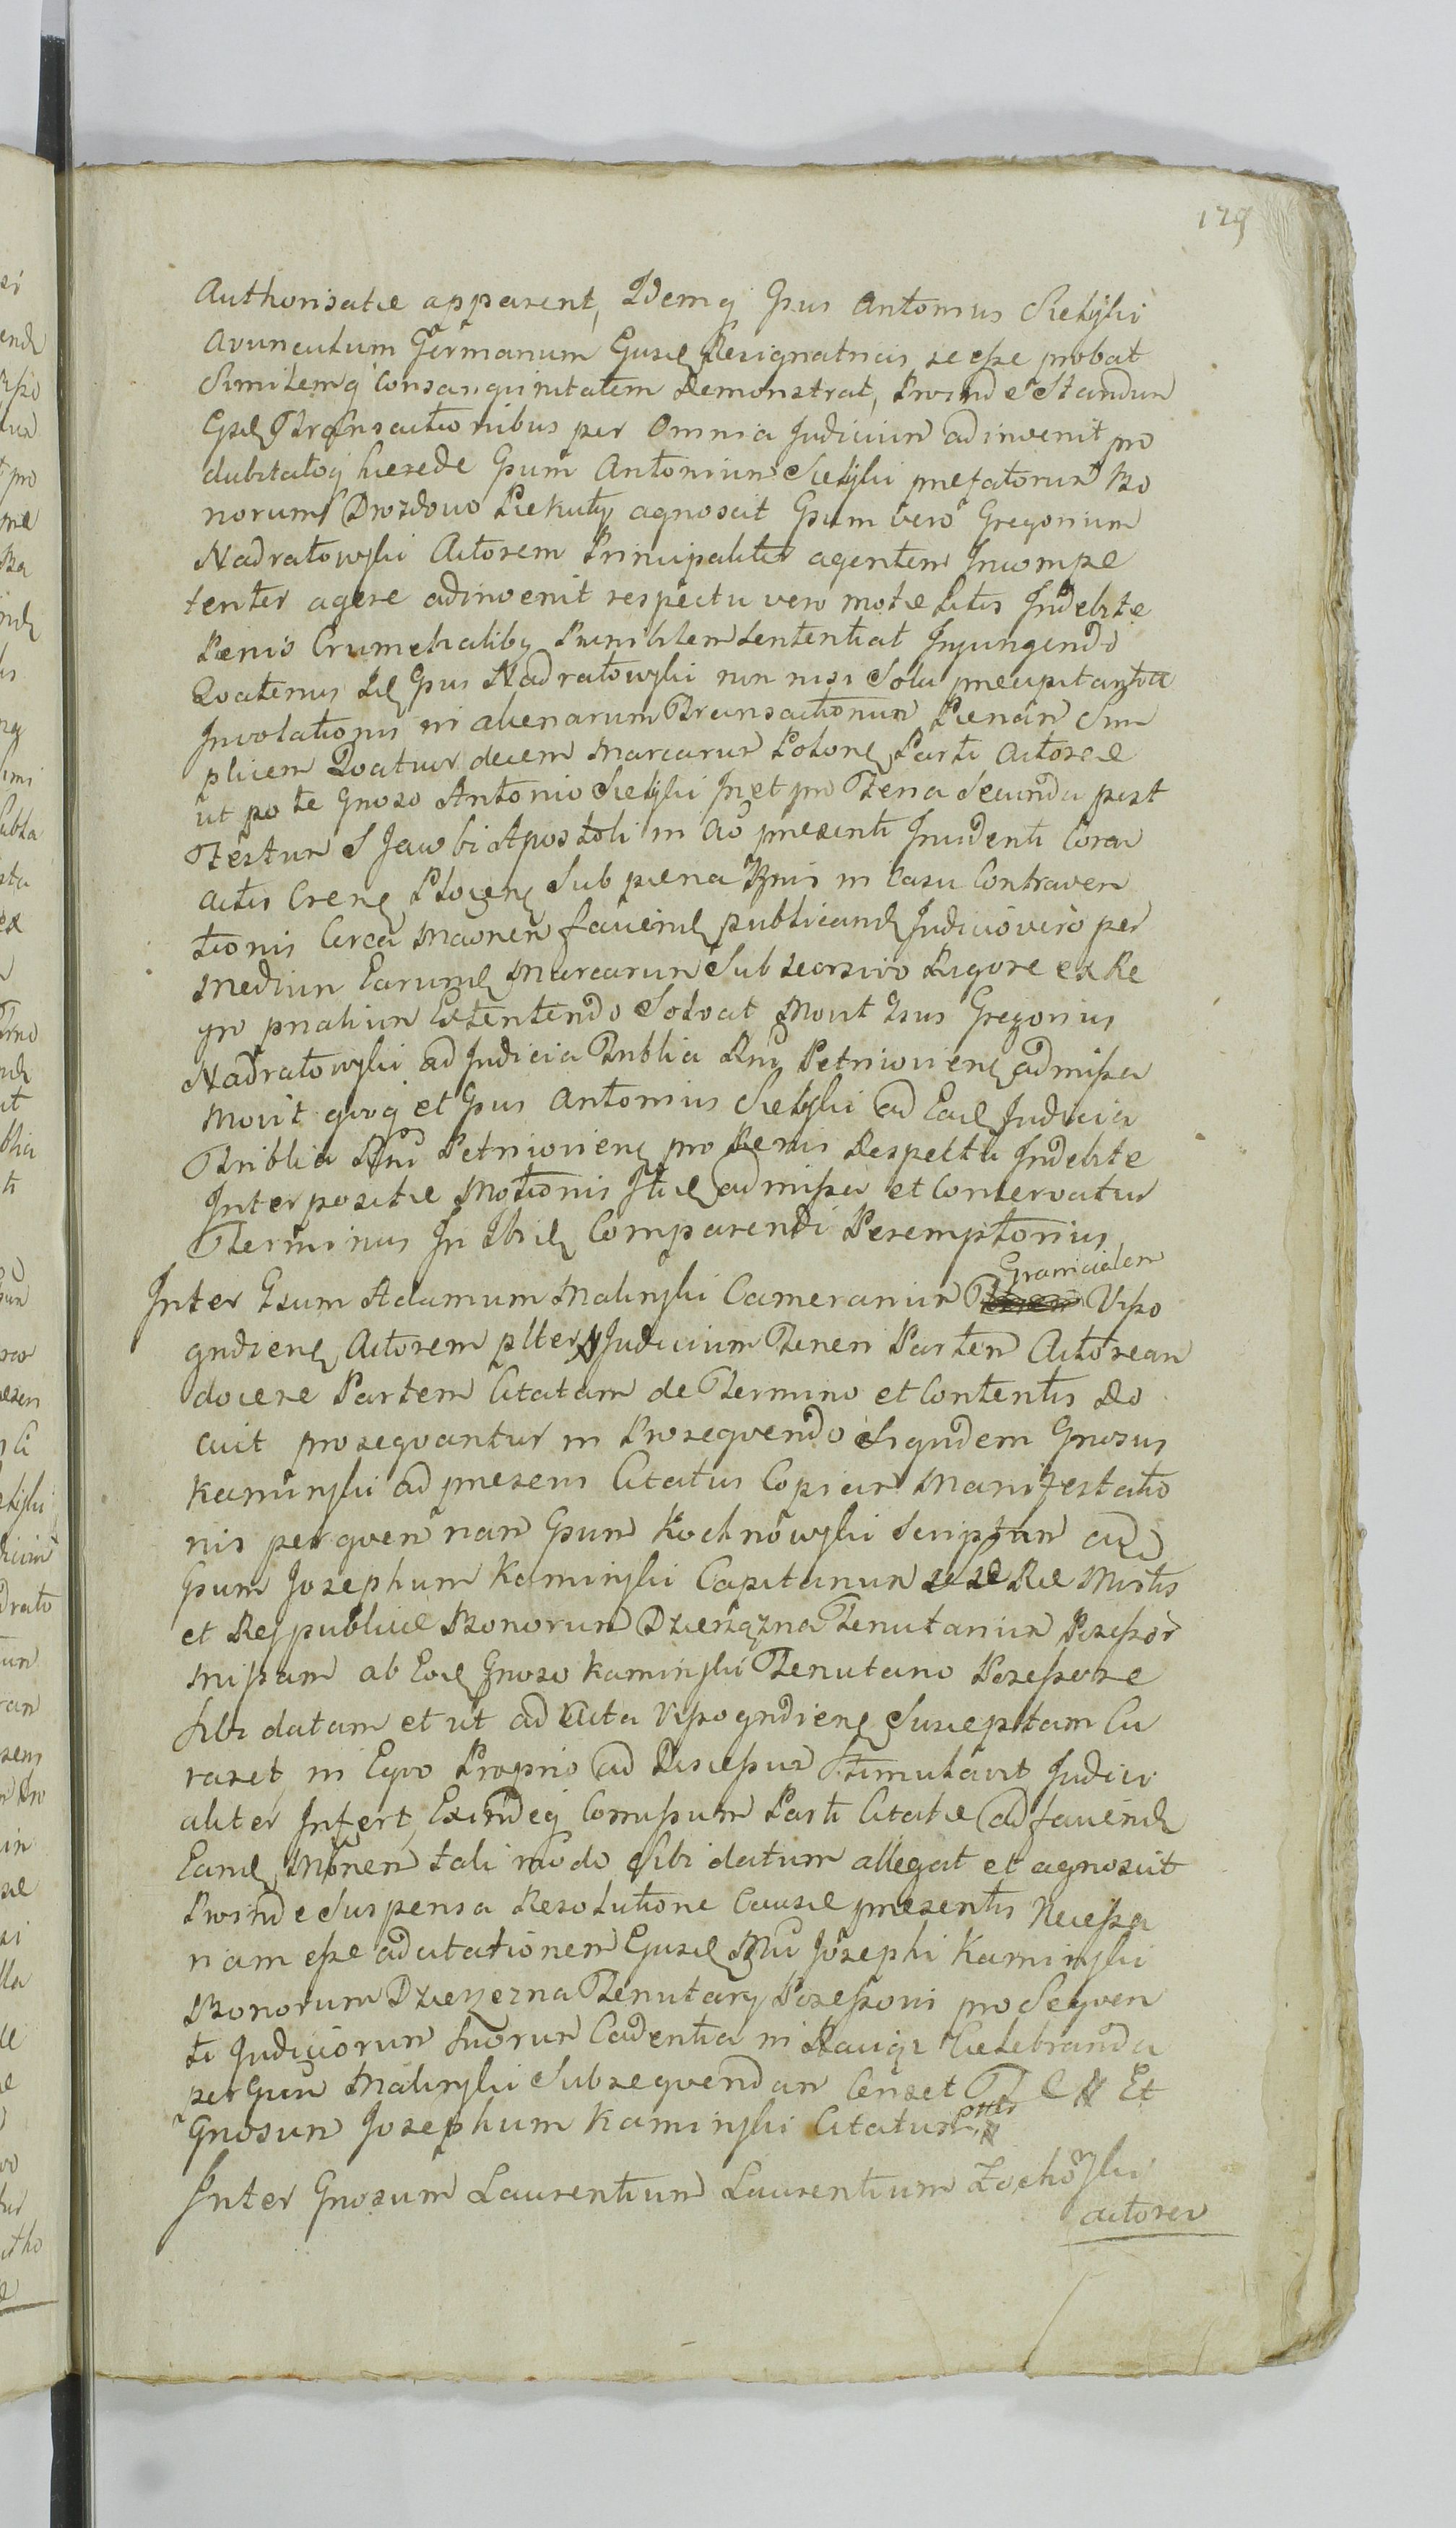 129
Authorisatæ apparent, Idemq Gsus Antonius Sielski
Avunculum Germanum Ejusd Resignatricis se esse probat
Similemq Consanguinitatem Demonstrat, Proinde Standum
Transactionibus per Omnia Judicium adinvenit pro
hærede Gsum Antonium Sielski præfatorum Bo
norum Drozdowo Piekuty agnoscit Gsum vero Gregorium
Nadratowski Actorem Principaliter agentem Incompe
tenter agere adinvenit respectu vero motæ Litis Indebite
Pænis Punibilem Sententiat Injungendo
Qvatenus Gsus Nadratowski non nisi Sola præcipitantia
Involationis in alienarum Transactionum Pænam Sim
plicem Qvatuordecem Marcarum Polon Parti Actoreæ
ut po te Gnoso Antonio Sielski In et pro Feria Secunda post
Festum S Jacobi Apostoli in Ao præsenti Incidenti Cora
Actis Cren Plocen Sub pæna Bnis in Casu Contraven
tionis Circa Maonen faciend publicand Judicio vero per
Medium Earund Marcarum Sub Rigore ex Re
gro pnalium Extentendo Solvat Movit Gsus Gregorius
Nadratowski ad Judicia Tnblia Rni Petricovien admissa
Movit qvoq et Gsus Antonius Sielski ad Ead Judicia
Tnblia Rni Petricovien pro Penis Respectu Indebite
Interpositæ Motionis admissa et Conservatur
Terminus In Comparendi Peremptorius
Inter Gsum Adamum Malinski Camerarium Granicialem Visso
gndien Actorem plter N Judicium Teneri Partem Actoream
docere Partem Citatam de Termino et Contentis Do
cuit proseqvantur in Proseqvendo Siqvidem Gnosus
Kaminski ad præsens Citatus Copiam Manifestatio
nis per qvem nam Gsum Kochnowski Scriptam ad
Gsum Josephum Kaminski Capitanum Ræ Mttis
et Reipublicæ Bonorum Dzierzązna Tenutarium Possessor
missam ab Eod Gnoso Kaminski Tenutario Possessore
sibi datam et ut ad Acta Vissogndien Susceptam Cu
raret in Eqvo Proprio ad Stimulavit Judici
aliter Infert, Exindeq Parti Citatæ ad faciend
Eand Monen tali modo Sibi datum allegat et agnoscit
Proinde Suspensa Resolutione Causæ præsentis Necessa
riam esse adcitationem Ejusd Josephi Kaminski
Bonorum Dzierzezna Tenutarii Possessoris pro Seqven
ti Judiciorum Suorum Cadentia in Celebranda
per Gsum Malinski Subseqvendam Censet T C N Et
Gnosum Josephum Kaminski Citatum Ptter
Inter Gnosum Laurentium Laurentium Zochoski
actorem